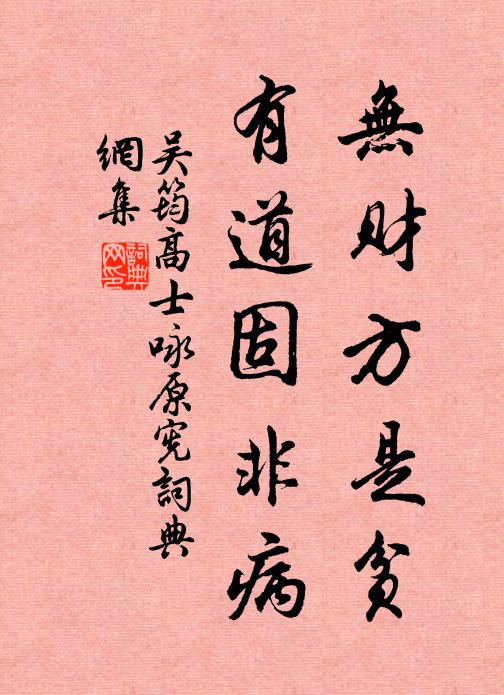 無财方是貧
有道固非病
吴筠高士咏原宪詞典
網集
詞典
网印